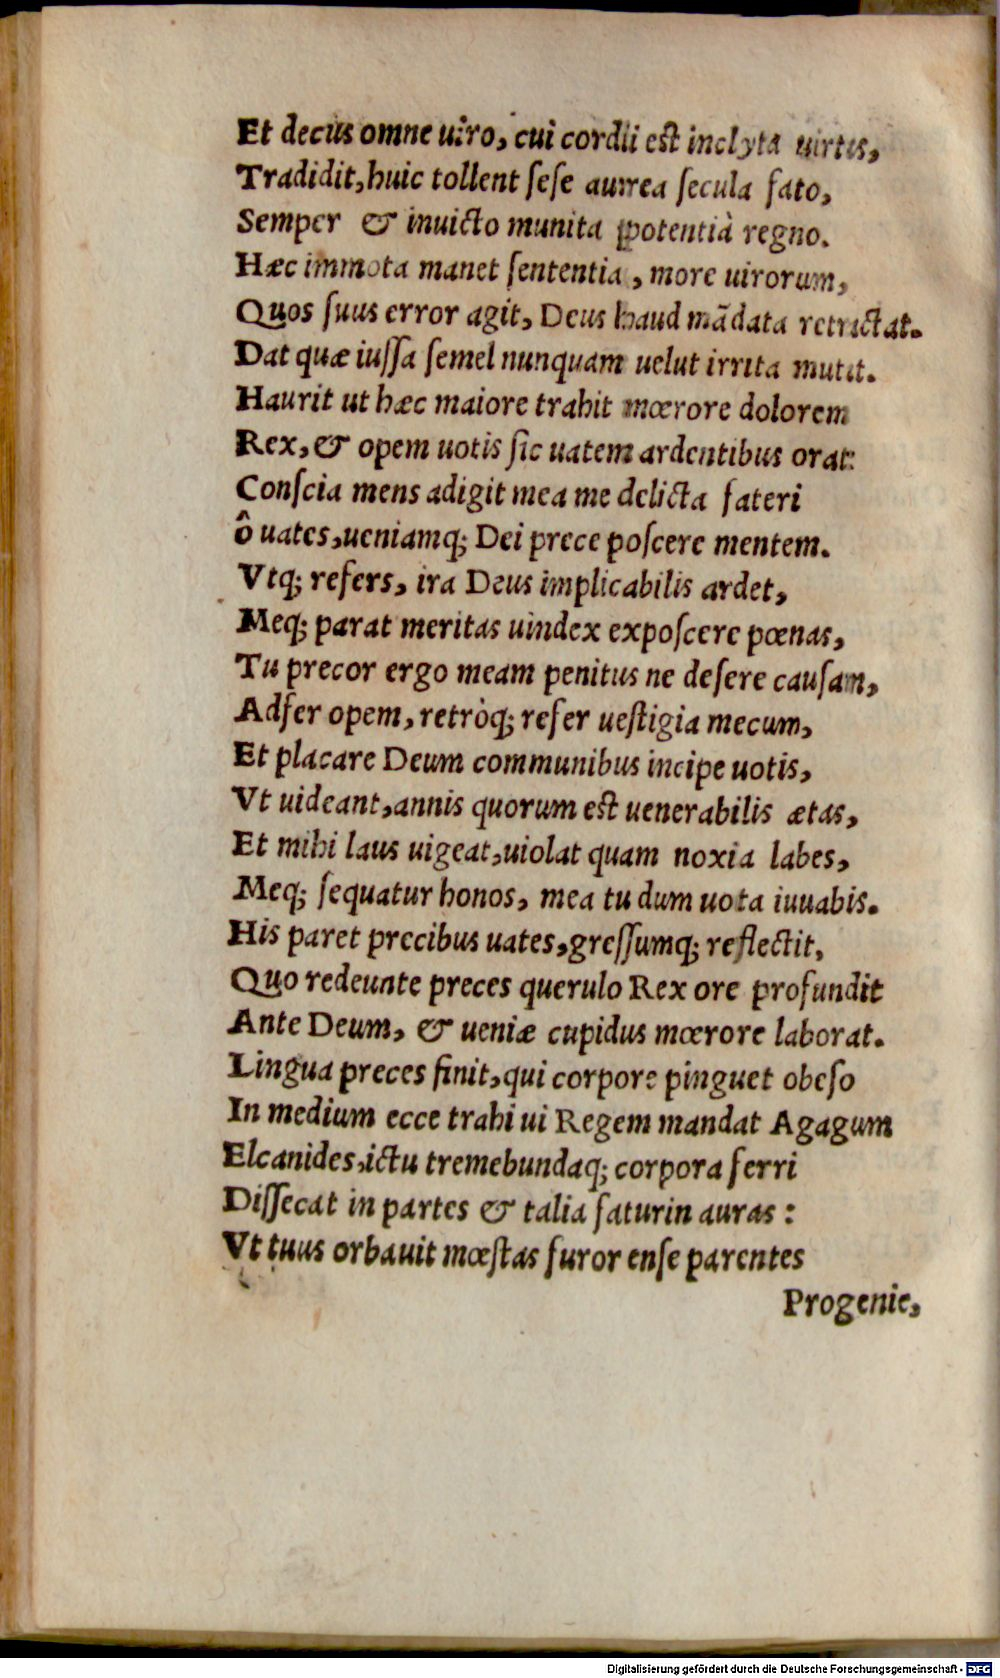 Et decus omne uiro, cui cordii est inclyta uirtus,
Tradidit, huic tollent ſeſe aurrea ſecula fato,
Semper & inuicto munita potentià regno.
Hæc immota manet ſententia, more uirorum,
Quos ſuus error agit, Deus haud mãdata retrictat.
Dat quæ iuſſa ſemel nunquam uelut irrita mutat.
Haurit ut hæc maiore trahit mœrore dolorem
Rex, & opem uotis ſic uatem ardentibus orat:
Conſcia mens adigit mea me delicta fateri
ô uates, ueniamq; Dei prece poſcere mentem.
Vtq; refers, ira Deus implicabilis ardet,
Meq; parat meritas uindex expoſcere pœnas,
Tu precor ergo meam penitus ne deſere cauſam,
Adfer opem, retròq; refer ueſtigia mecum,
Et placare Deum communibus incipe uotis,
Vt uideant, annis quorum est uenerabilis ætas,
Et mihi laus uigeat, uiolat quam noxia labes,
Meq; ſequatur honos, mea tu dum uota iuuabis.
His paret precibus uates, greſſumq; reflectit,
Quo redeunte preces querulo Rex ore profundit
Ante Deum, & ueniæ cupidus mœrore laborat.
Lingua preces finit, qui corpore pinguet obeſo
In medium ecce trahi ui Regem mandat Agagum
Elcanides, ictu tremebundaq; corpora ferri
Diſſecat in partes & talia faturin auras:
Vt tuus orbauit mœſtas furor enſe parentes
Progenie,
Digitalisierung gefördert durch die Deutsche Forschungsgemeinschaft - DFG